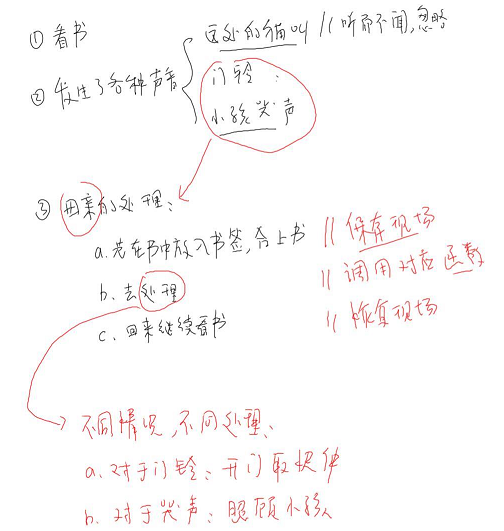 ① 看书
② 发生了各种声音
远处的猫叫 // 听而不闻,忽略
门铃
小孩哭声
③ 母亲的处理:
a.先在书中放入书签,合上书 // 保存现场
b、去处理 // 调用对应函数
c、回来继续看书 // 恢复现场
不同情况,不同处理:
a.对于门铃:开门取快件
b.对于哭声:照顾小孩